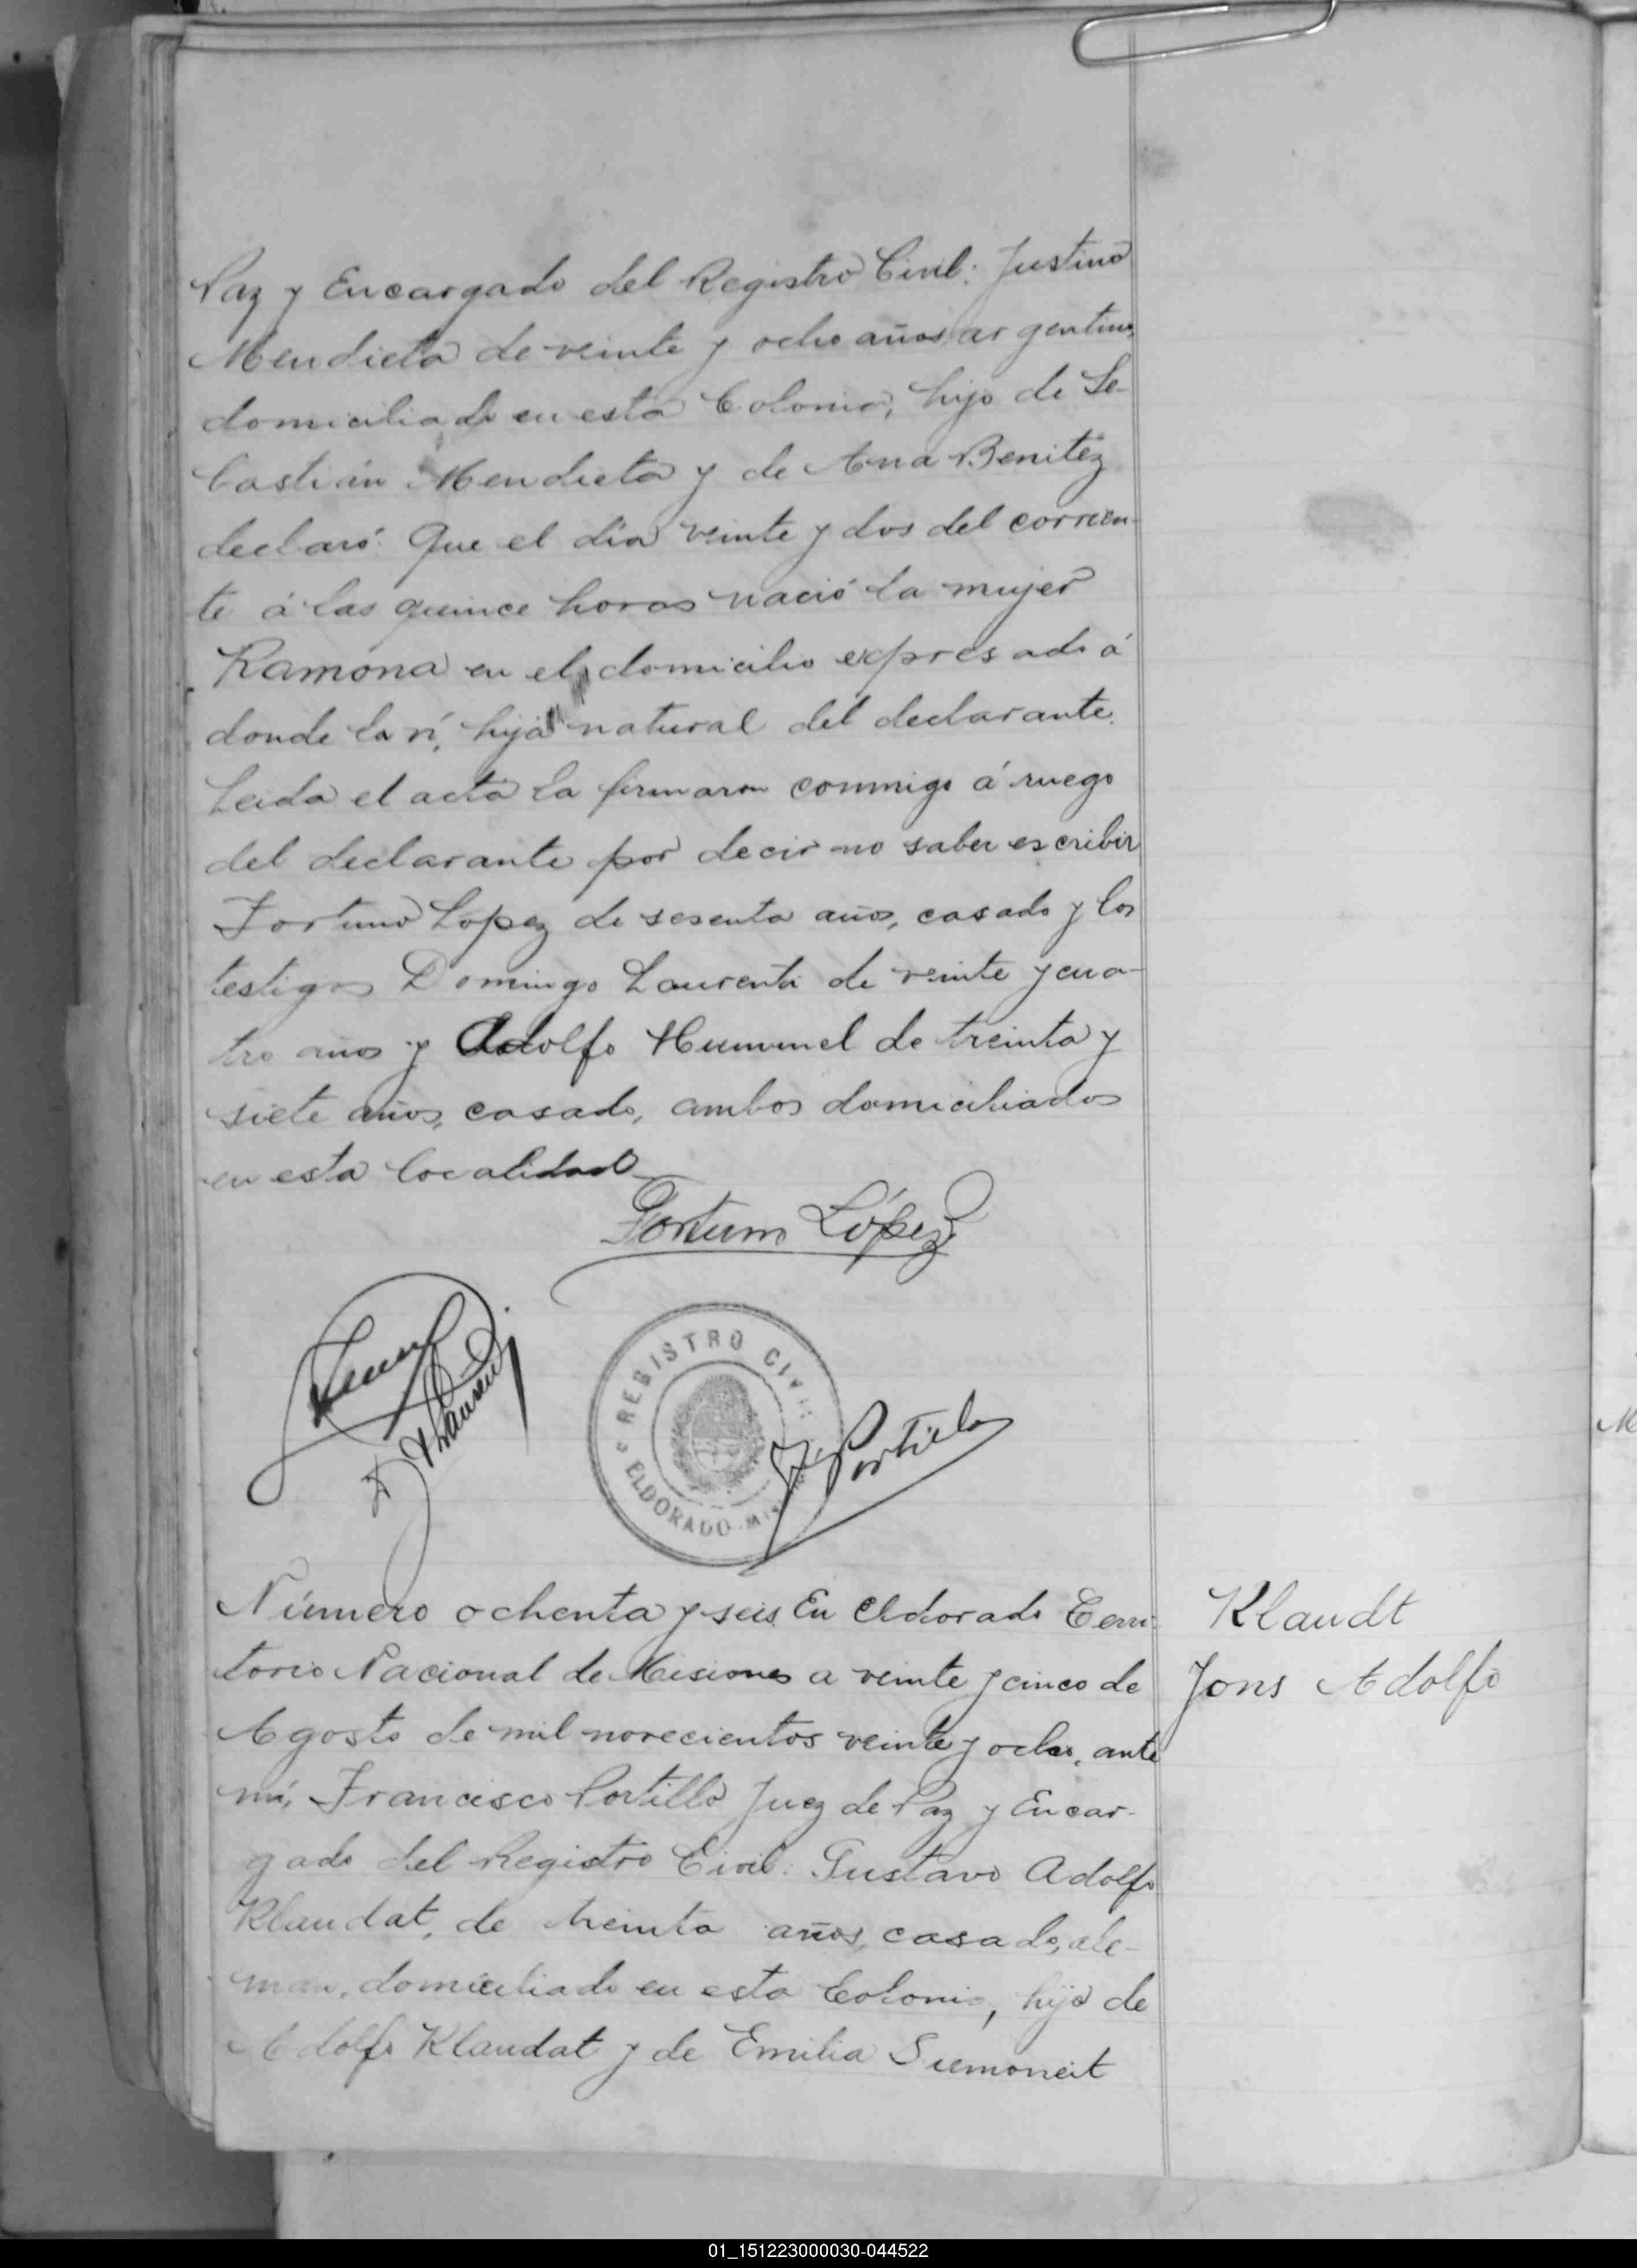 Paz y Encargado del Registro Civil: Justino
Mendieta de veinte y ocho años, argentino,
domiciliado en esta Colonia, hijo de Se-
bastián Mendieta y de Ana Benitez
declaró: Que el día veinte y dos del corrien-
te á las quince horas nació la mujer
Ramona en el domicilio expresado á
donde la ví, hija natural del declarante.
Leida el acta la firmaron conmigo á ruego
del declarante por decir no saber escribir
Fortuno López de sesenta años, casado y los
testigos Domingo Laurenti de veinte y cua-
tro años y Adolfo Hummel de treinta y
siete años, casado, ambos domiciliados
en esta localidad
Fortuno López
REGISTRO CIVIL
ELDORADO
F. Portillo
Número ochenta y seis En Eldorado Terri-
torio Nacional de Misiones a veinte y cinco de
Agosto de mil novecientos veinte y ocho, ante
mí, Francisco Portillo Juez de Paz y Encar-
gado del Registro Civil: Gustavo Adolfo
Klaudat, de treinta años, casado, ale-
man, domiciliado en esta Colonia, hijo de
Adolfo Klaudat y de Emilia Sumoneit
Klaudt
Jons Adolfo
01_151223000030-044522